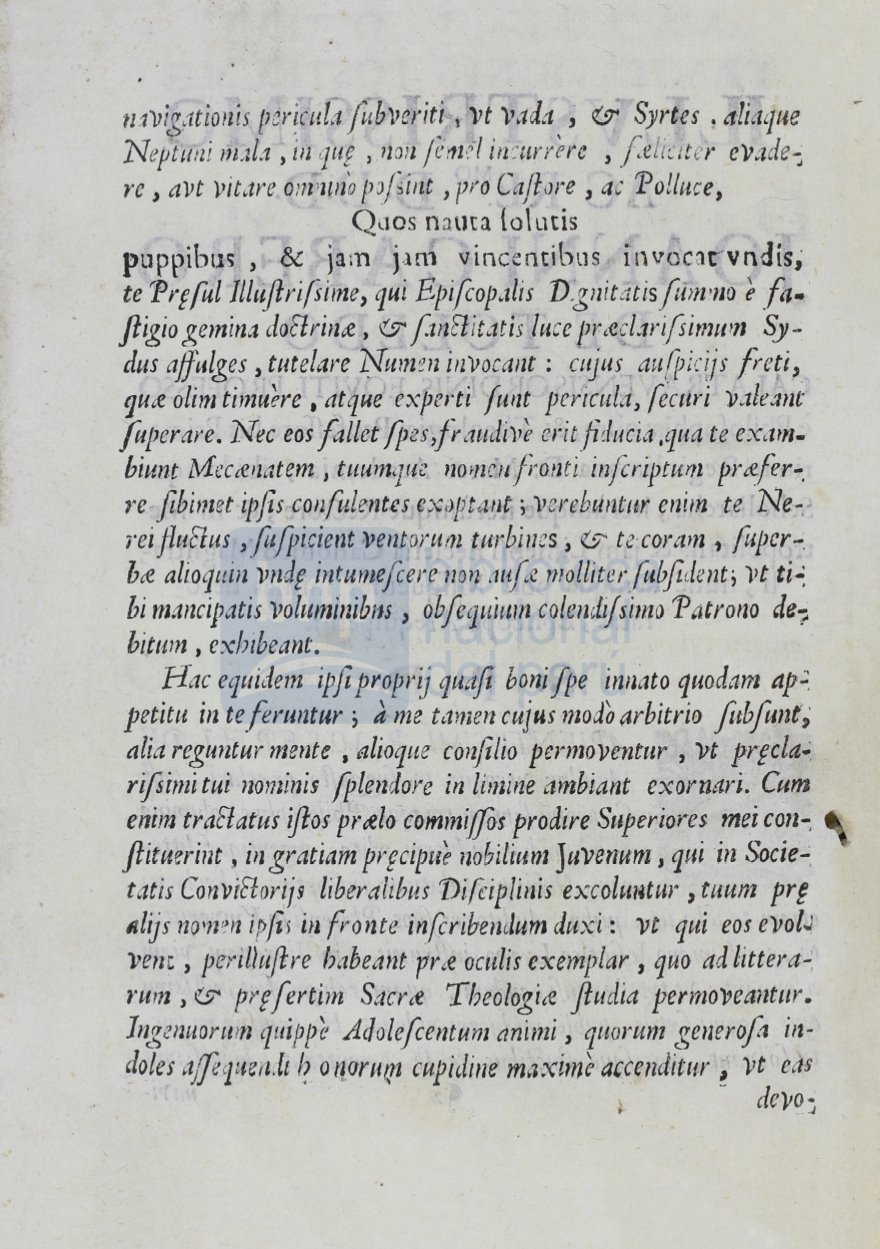 navigationis pericula ſubveriti, vt vada, & Syrtes, aliaque
Neptuni mala, in quę, non ſemel incurrère, fæliciter evade-
re, avt vitare omninò poſsint, pro Caſtore, ac Polluce,
Quos nauta ſolutis
puppibus, & jam jam vincentibus invocat vndis,
te Pręſul Illuſtriſsime, qui Epiſcopalis Dignitatis ſummo è fa-
ſtigio gemina doctrinæ, & ſanctitatis luce præclariſsimum Sy-
dus affulges, tutelare Numen invocant: cujus auſpicijs freti,
quæ olim timuère, atque experti ſunt pericula, ſecuri valeant
ſuperare. Nec eos fallet ſpes, fraudivè erit fiducia, qua te exam-
biunt Mecænatem, tuumque nomen fronti inſcriptum præfer-
re ſibimet ipſis conſulentes exoptant; verebuntur enim te Ne-
rei fluctus, ſuſpicient ventorum turbines, & te coram, ſuper-
bæ alioquin vndę intumeſcere non auſæ molliter ſubſident; vt ti-
bi mancipatis voluminibus, obſequium colendiſsimo Patrono de-
bitum, exhibeant.
Hac equidem ipſi proprij quaſi boni ſpe innato quodam ap-
petitu in te feruntur; à me tamen cujus modò arbitrio ſubſunt,
alia reguntur mente, alioque conſilio permoventur, vt pręcla-
riſsimi tui nominis ſplendore in limine ambiant exornari. Cum
enim tractatus iſtos prælo commiſſos prodire Superiores mei con-
ſtituerint, in gratiam pręcipuè nobilium Juvenum, qui in Socie-
tatis Convictorijs liberalibus Diſciplinis excoluntur, tuum prę
alijs nomen ipſis in fronte inſcribendum duxi: vt qui eos evol-
vent, perilluſtre habeant præ oculis exemplar, quo ad littera-
rum, & pręſertim Sacræ Theologiæ ſtudia permoveantur.
Ingenuorum quippè Adoleſcentum animi, quorum generoſa in-
doles aſſequendi honorum cupidine maximè accenditur, vt eas
devo-
biblioteca
nacional
del perú